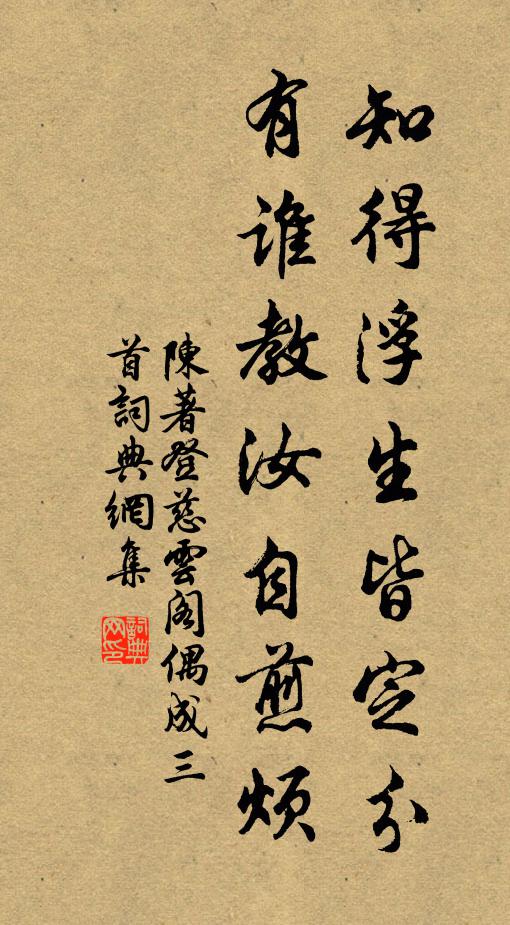 知得浮生皆定分
有誰教汝自煎煩
陳著登慈雲閣偶成三
首詞典網集
詞典網印